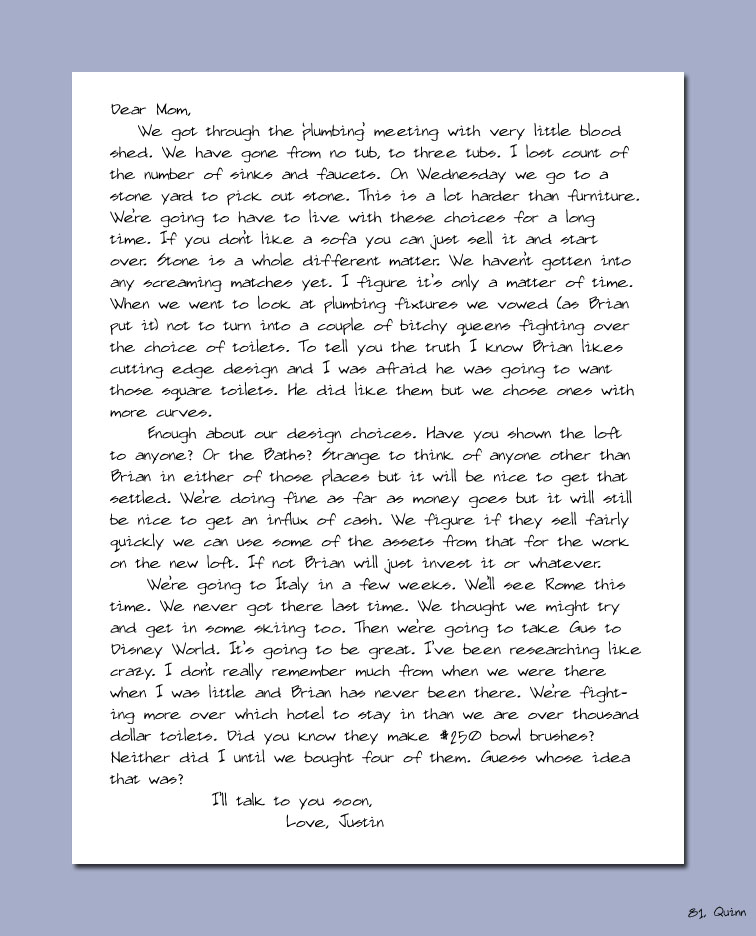 Dear Mom,
We got through the 'plumbing' meeting with very little blood
shed. We have gone from no tub, to three tubs. I lost count of
the number of sinks and faucets. On Wednesday we go to a
stone yard to pick out stone. This is a lot harder than furniture.
We're going to have to live with these choices for a long
time. If you don't like a sofa you can just sell it and start
over. Stone is a whole different matter. We haven't gotten into
any screaming matches yet. I figure it's only a matter of time.
When we went to look at plumbing fixtures we vowed (as Brian
put it) not to turn into a couple of bitchy queens fighting over
the choice of toilets. To tell you the truth I know Brian likes
cutting edge design and I was afraid he was going to want
those square toilets. He did like them but we chose ones with
more curves.
Enough about our design choices. Have you shown the loft
to anyone? Or the Baths? Strange to think of anyone other than
Brian in either of those places but it will be nice to get that
settled. We're doing fine as far as money goes but it will still
be nice to get an influx of cash. We figure if they sell fairly
quickly we can use some of the assets from that for the work
on the new loft. If not Brian will just invest it or whatever.
We're going to Italy in a few weeks. We'll see Rome this
time. We never got there last time. We thought we might try
and get in some skiing too. Then we're going to take Gus to
Disney World. It's going to be great. I've been researching like
crazy. I don't really remember much from when we were there
when I was little and Brian has never been there. We're fight-
ing more over which hotel to stay in than we are over thousand
dollar toilets. Did you know they make $250 bowl brushes?
Neither did I until we bought four of them. Guess whose idea
that was?
I'll talk to you soon,
Love, Justin
81, Quinn